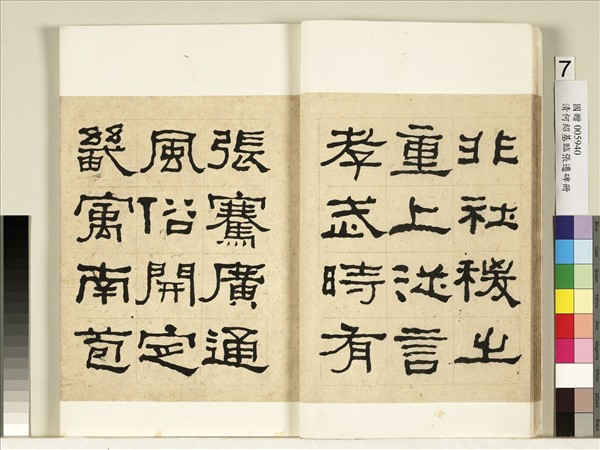 非社稷之
重上從言
孝武時有
張騫廣通
風俗開定
畿寓南苞
7
國贈 005940
清何紹基臨張遷碑冊